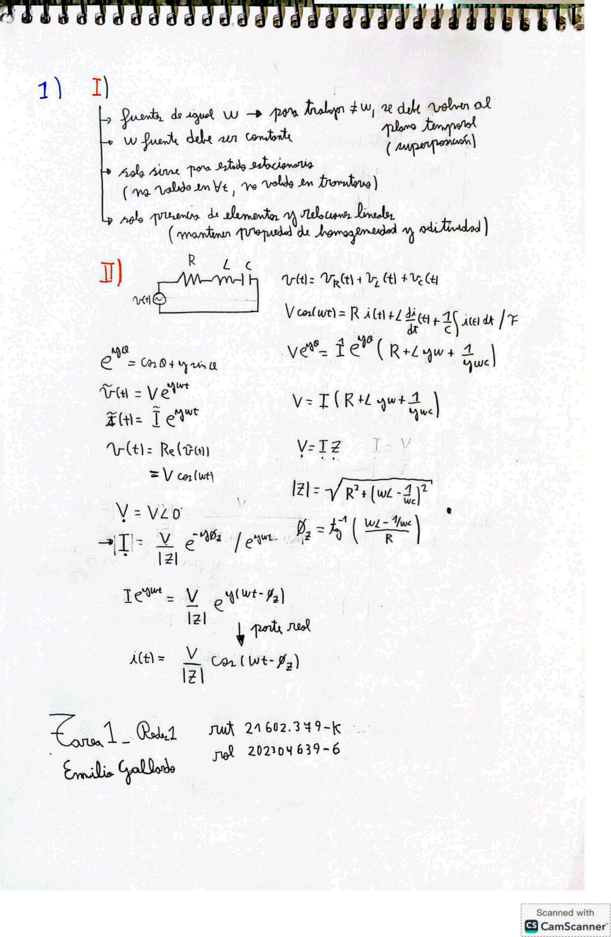 1) I)
→ fuente de igual w → para trabajar ≠ w, se debe volver al
plano temporal
(superposición)
→ w fuente debe ser constante
→ solo sirve para estado estacionario
(no valido en ∀t, no valido en transitorio)
→ solo presencia de elementos y relaciones lineales
(mantener propiedad de homogeneidad y aditividad)
II)
R L C
v(t)
v(t) = v_R(t) + v_L(t) + v_C(t)
V cos(wt) = R i(t) + L di/dt (t) + 1/C ∫ i(t) dt / F
e^{jθ} = cos θ + j sin θ
V e^{jθ} = Î e^{jθ} ( R + L jw + 1/jwc )
ṽ(t) = V e^{jwt}
ĩ(t) = Ĩ e^{jwt}
V = I ( R + L jw + 1/jwc )
v(t) = Re(ṽ(t))
= V cos(wt)
V = I Z
|Z| = √( R² + (wL - 1/wc)² )
V = V∠0
ϕ_z = tg⁻¹ ( (wL - 1/wc) / R )
→ |I| = V/|Z| e^{-jϕ_z} / e^{jwt}
I e^{jwt} = V/|Z| e^{j(wt-ϕ_z)}
↓ parte real
i(t) = V/|Z| cos(wt-ϕ_z)
Tarea 1 _ Redes 1
Emilio Gallardo
rut 21602.379-K
rol 202304639-6
Scanned with
CS CamScanner